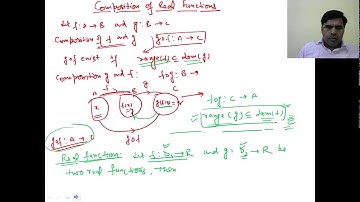 Composition of Real Functions
Let f: A → B and g: B → C
Composition of f and g gof: A → C
gof exist if range(f) ⊆ dom(g)
Composition g and f: fog: B →
A f B g C
x f(x) = y g(f(x)) =
fog: C → A
range(g) ⊆ dom(f)
gof
gof: A → C
Real function: Let f: D₁ → R and g: D₂ → R be
two real functions, then